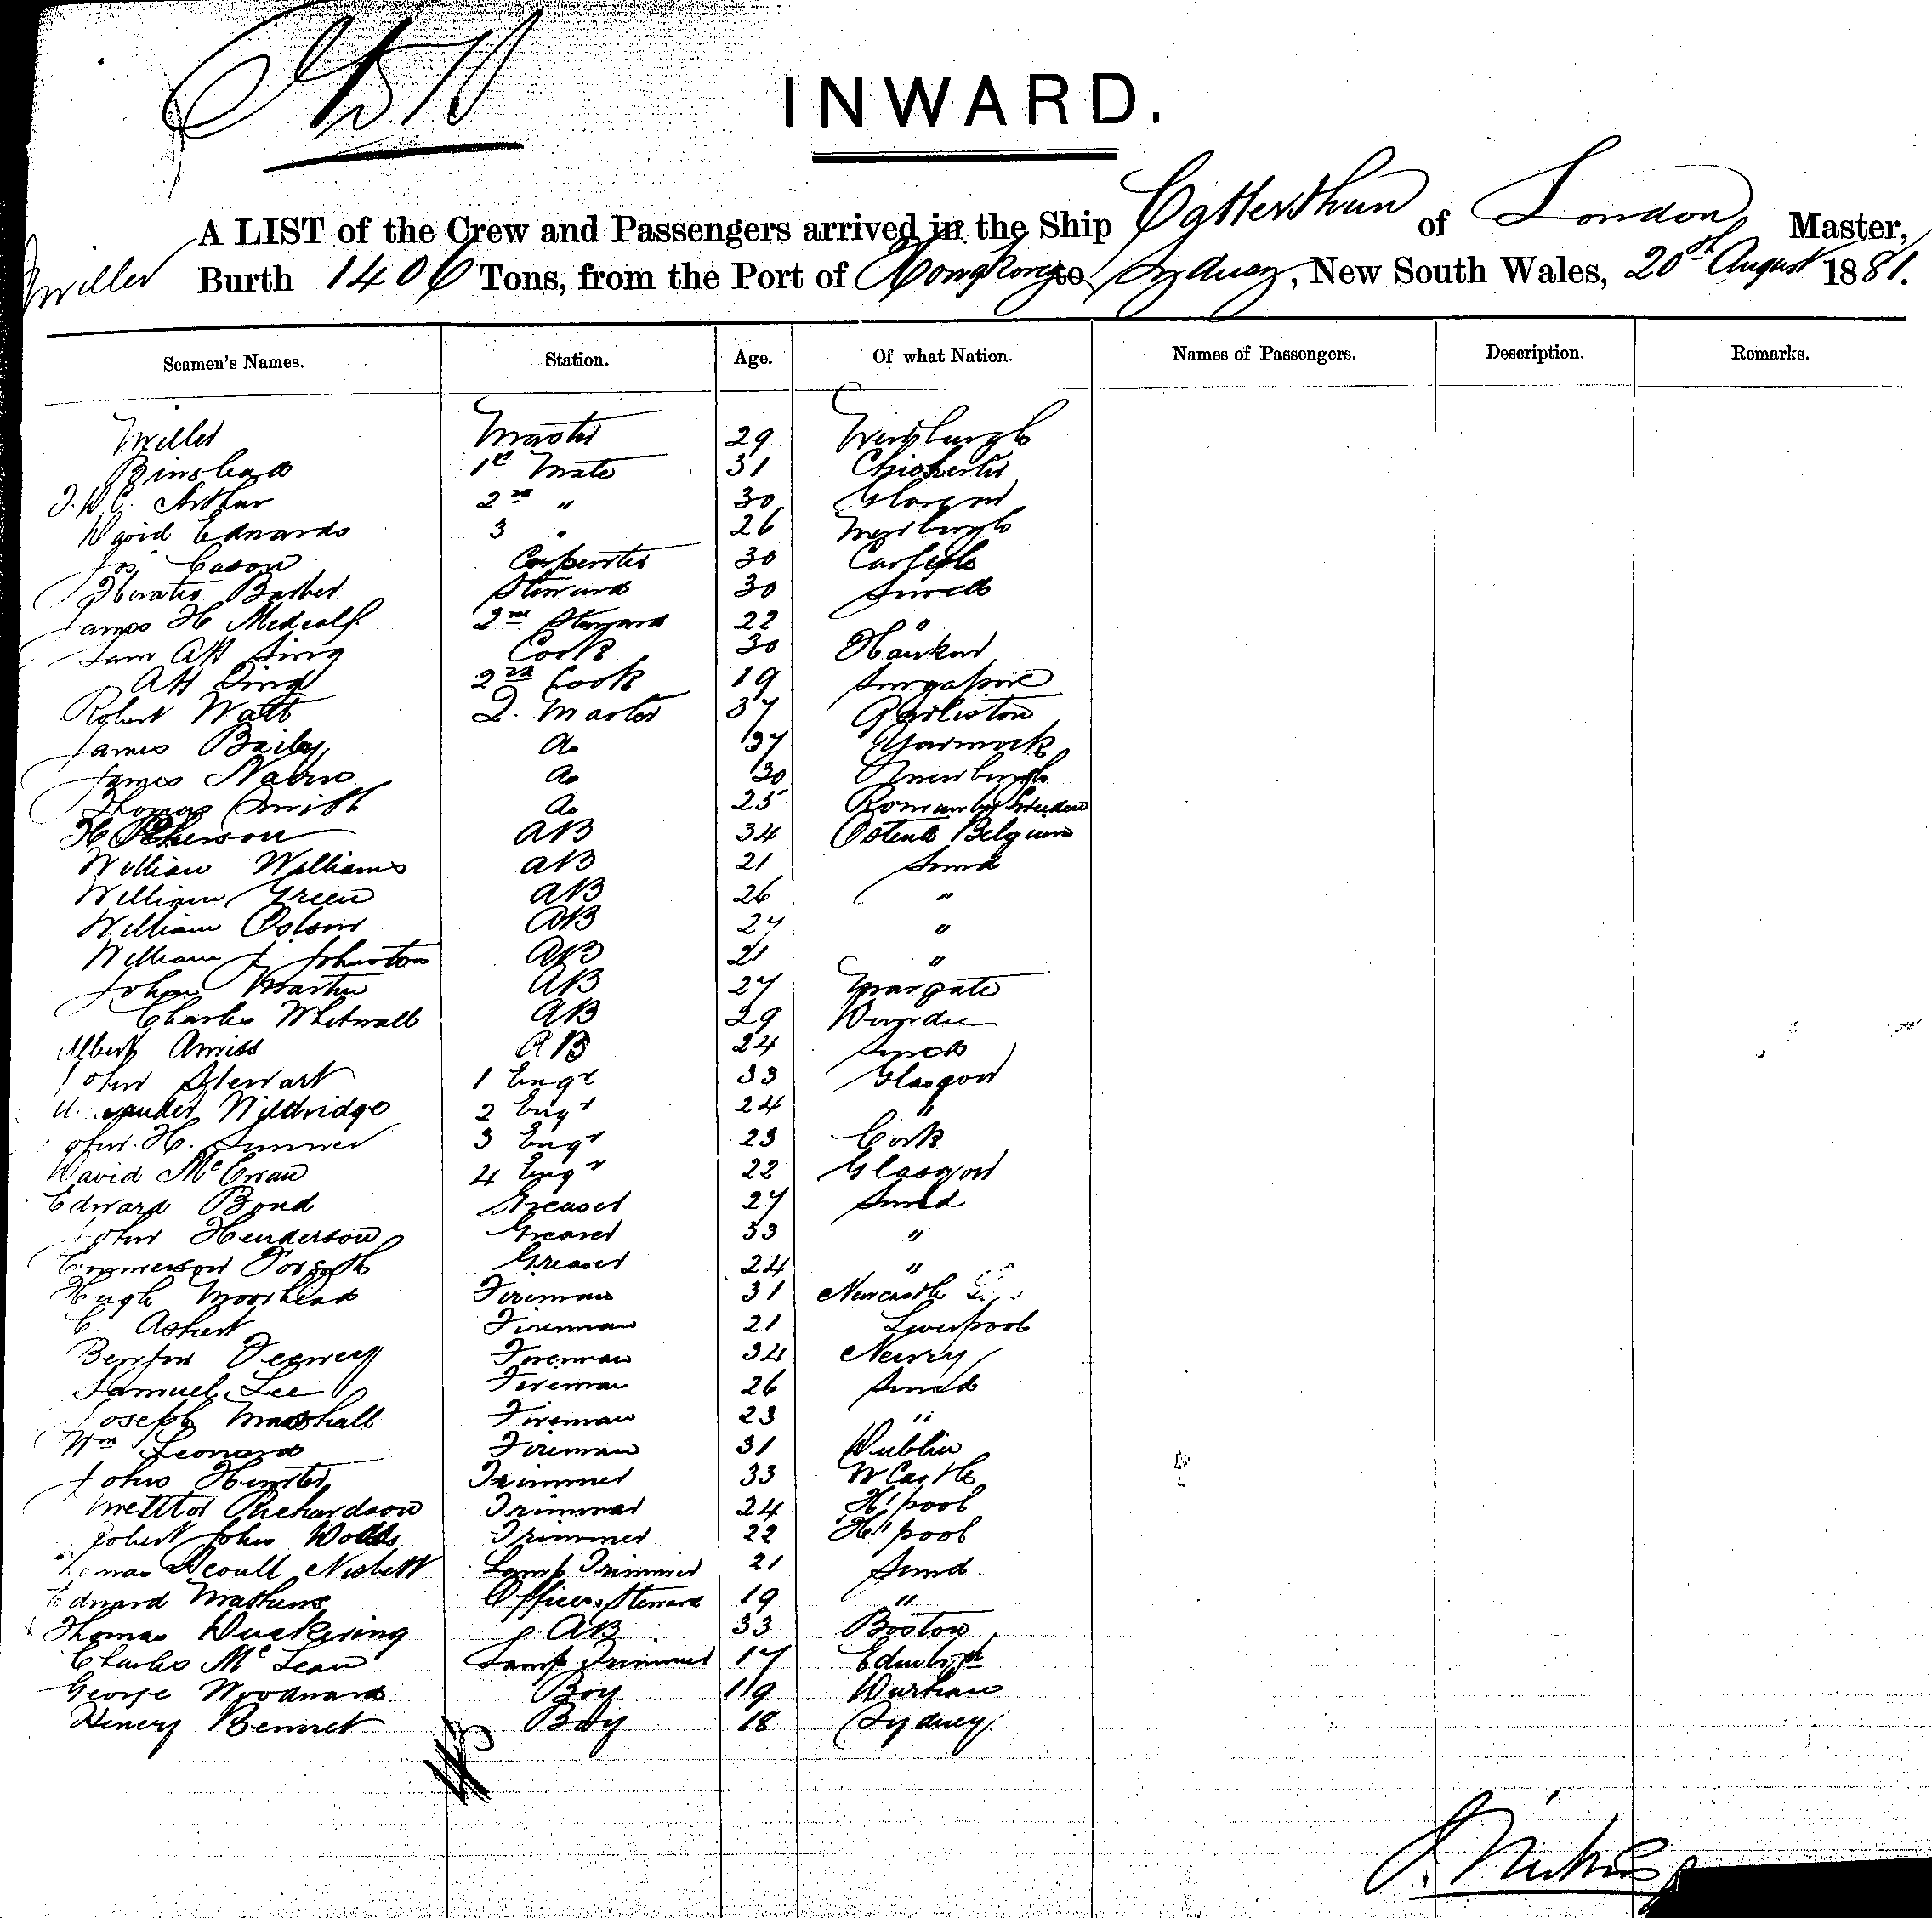 INWARD.
A LIST of the Crew and Passengers arrived in the Ship Catterthun of London Master,
Miller Burth 1406 Tons, from the Port of Hong Kong to Sydney, New South Wales, 20th August 1881.
Seamen's Names. Station. Age. Of what Nation. Names of Passengers. Description. Remarks.
Miller Master 29 Newburgh
Binstead 1st Mate 31 Chichester
J. W. C. Arthur 2nd " 30 Glasgow
David Edwards 3 " 26 Newburgh
Jos Cason Carpenter 30 Carlisle
Horatio Barber Steward 30 Sunld
James H Metcalf 2nd Steward 22 "
Lam Ah Sing Cook 30 Hankow
Ah Sing 2nd Cook 19 Singapore
Robert Watt Q. Master 37 Garliston
James Baily Do 37 Yarmouth
James Nairn Do 30 Newburgh
Thomas Smith Do 25 Sweden
H AB 34 Ostend Belgium
William Williams AB 21 Sund
William Green AB 26 "
William Colson AB 27 "
William J. Johnston AB 21 "
John Martin AB 27 Margate
Charles Whitwall AB 29 Dundee
Albert Amiss AB 24 Sund
John Stewart 1 Engr 33 Glasgow
Wildridge 2 Engr 24 "
H. Sumner 3 Engr 23 Cork
David McEwan 4 Engr 22 Glasgow
Edward Bond Greaser 27 Sund
John Henderson Greaser 33 "
Emmerson Forsyth Greaser 24 "
Hugh Moorhead Fireman 31 Newcastle
C. Fireman 21 Liverpool
Fireman 34 Newry
Samuel Lee Fireman 26 Sund
Joseph Marshall Fireman 23 "
Wm Leonard Fireman 31 Dublin
John Hunter Trimmer 33 N Castle
Richardson Trimmer 24 Hpool
Robert John Trimmer 22 Hpool
Nisbett Lamp Trimmer 21 Sund
Edward Mathews Officers Steward 19 "
Thomas Duckering AB 33 Boston
Charles McLean Lamp Trimmer 17 Edinbrgh
George Woodward Boy 19 Durham
Henery Bennet Boy 18 Sydney